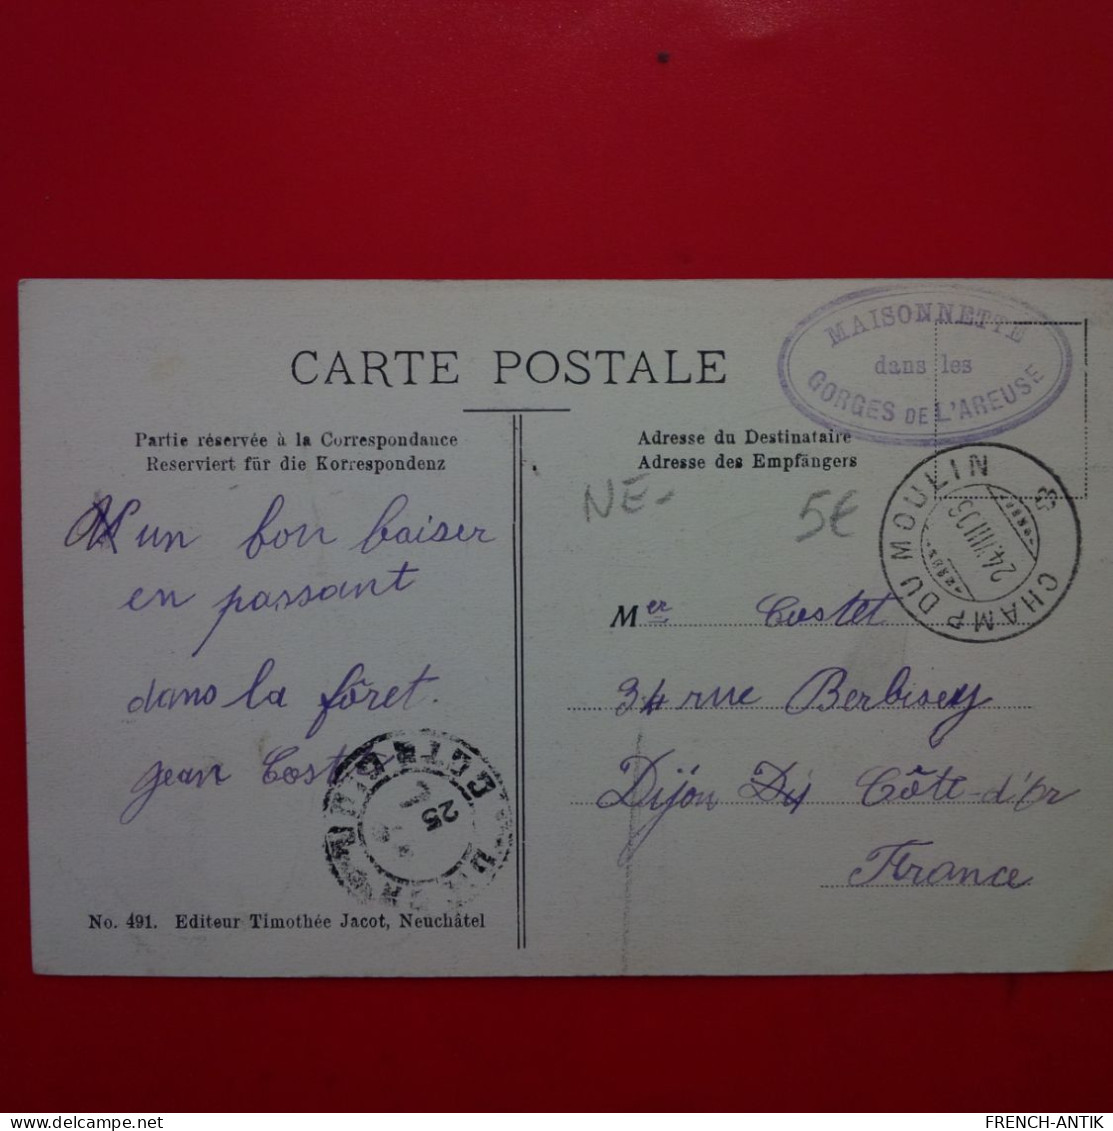 MAISONNETTE
dans les
GORGES DE L'AREUSE
CARTE POSTALE
Partie réservée à la Correspondance
Reserviert für die Korrespondenz
Adresse du Destinataire
Adresse des Empfängers
NE-
5€
CHAMP DU MOULIN
24.VIII.05
un bon baiser
en passant
dans la fôret.
Jean Costet
Mer Costet
34 rue Berbisey
Dijon Côte-d'Or
France
25
No. 491. Editeur Timothée Jacot, Neuchâtel
FRENCH-ANTIK